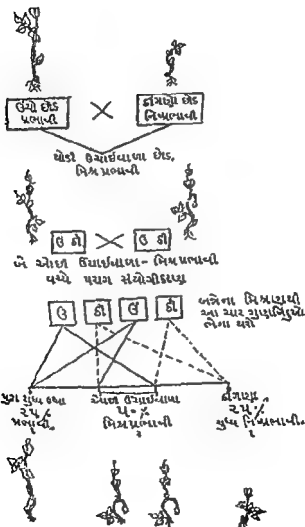 ઉંચો છોડ
પ્રભાવી
×
ઠીંગણો છોડ
નિષ્પ્રભાવી
થોડી ઉંચાઈવાળા છોડ,
મિશ્ર પ્રભાવી
ઉ ઠી × ઉ ઠી
બે ઓછી ઉંચાઈવાળા - મિશ્રપ્રભાવી
વચ્ચે પરાગ સંયોગીકરણ
ઉ ઠી ઉ ઠી
બન્નેના મિશ્રણથી
આ ચાર ગુણબિંદુઓ
ભેગા થશે
શુદ્ધ ઉંચા
૨૫%
પ્રભાવી.
ઓછી ઉંચાઈવાળા
૫૦%
મિશ્રપ્રભાવી
૨
ઠીંગણા
૨૫%
શુધ્ધ નિષ્પ્રભાવી.
૧